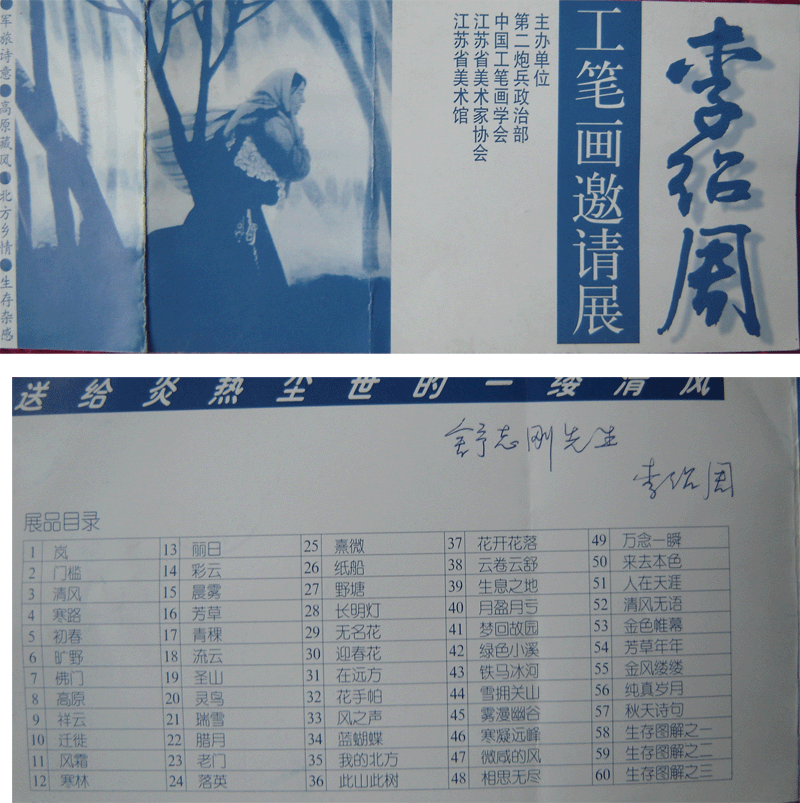 李绍周
工笔画邀请展
主办单位
第二炮兵政治部
中国工笔画学会
江苏省美术家协会
江苏省美术馆
军旅诗意●高原藏风●北方乡情●生存杂感
送给炎热尘世的一缕清风
舒志刚先生
李绍周
展品目录
1 岚 13 丽日 25 熹微 37 花开花落 49 万念一瞬
2 门槛 14 彩云 26 纸船 38 云卷云舒 50 来去本色
3 清风 15 晨雾 27 野塘 39 生息之地 51 人在天涯
4 寒路 16 芳草 28 长明灯 40 月盈月亏 52 清风无语
5 初春 17 青稞 29 无名花 41 梦回故园 53 金色帷幕
6 旷野 18 流云 30 迎春花 42 绿色小溪 54 芳草年年
7 佛门 19 圣山 31 在远方 43 铁马冰河 55 金风缕缕
8 高原 20 灵鸟 32 花手帕 44 雪拥关山 56 纯真岁月
9 祥云 21 瑞雪 33 风之声 45 雾漫幽谷 57 秋天诗句
10 迁徙 22 腊月 34 蓝蝴蝶 46 寒凝远峰 58 生存图解之一
11 风霜 23 老门 35 我的北方 47 微咸的风 59 生存图解之二
12 寒林 24 落英 36 此山此树 48 相思无尽 60 生存图解之三